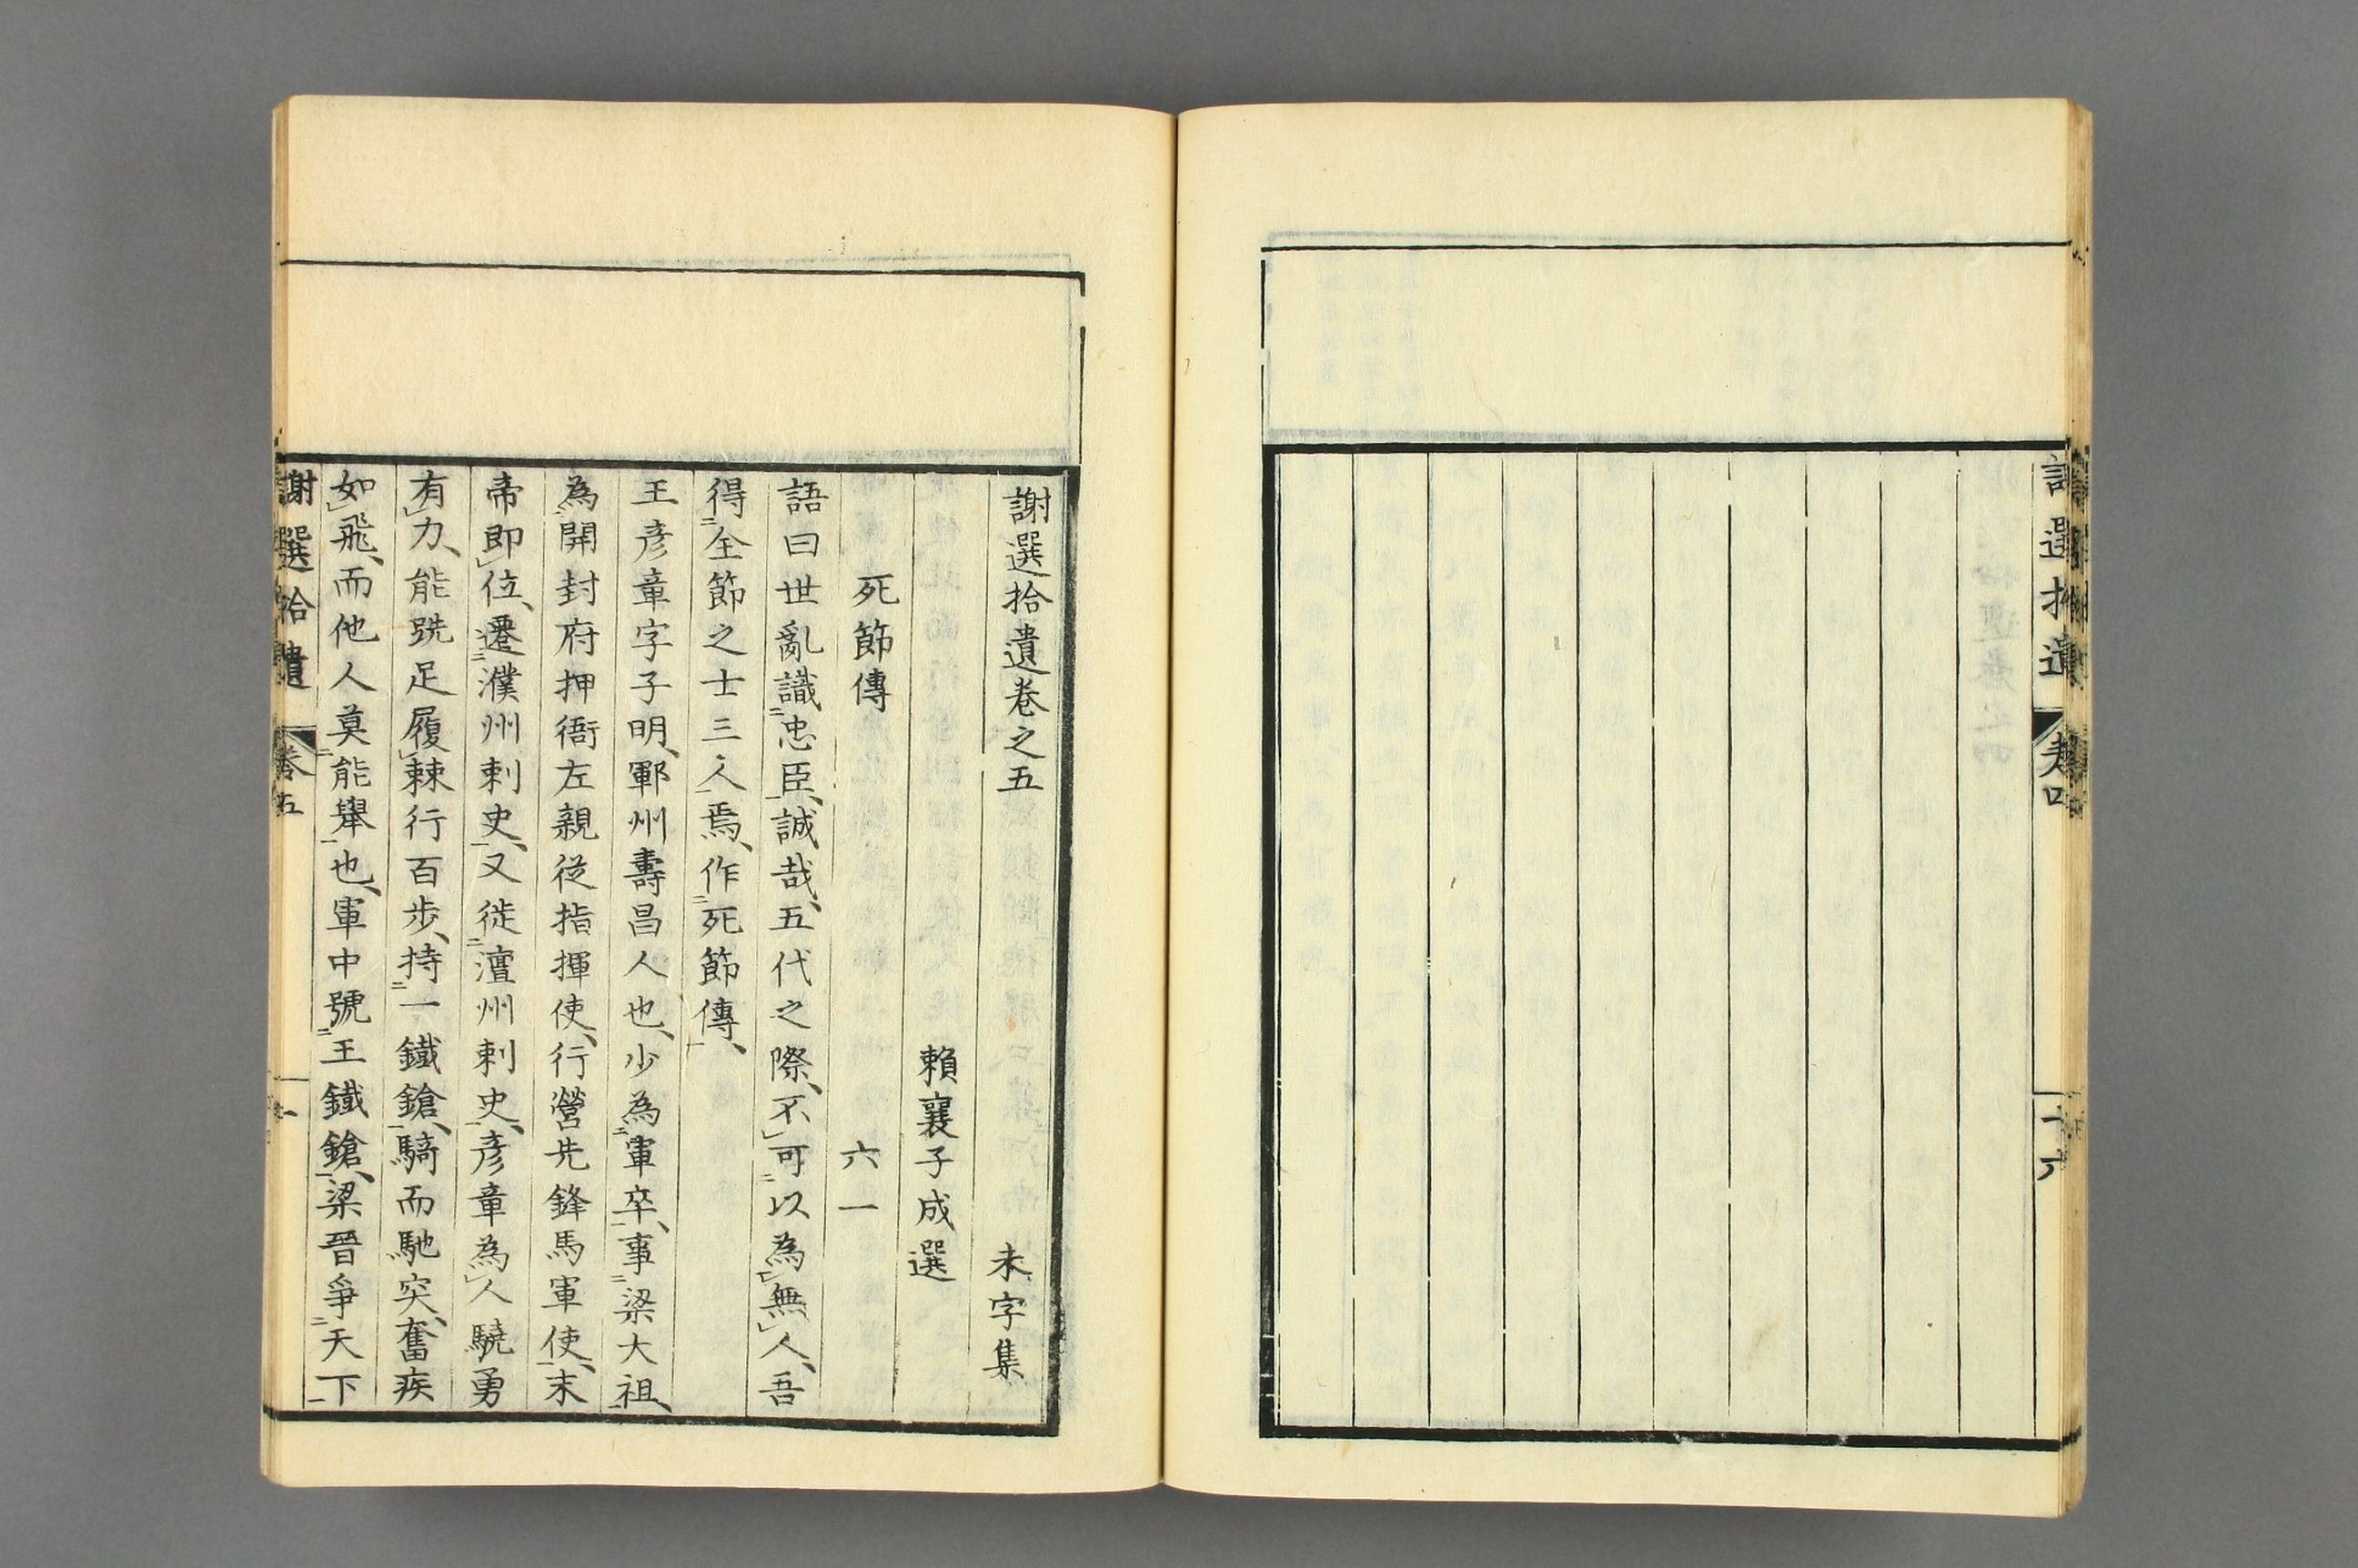 謝選拾遺
十六
謝選拾遺卷之五
未字集
賴襄子成選
死節傳
六一
語曰世亂識忠臣誠哉五代之際不可以為無人吾
得全節之士三人焉作死節傳
王彥章字子明鄆州壽昌人也少為軍卒事梁大祖
為開封府押衙左親從指揮使行營先鋒馬軍使末
帝即位遷濮州刺史又徙澶州刺史彥章為人驍勇
有力能跣足履棘行百步持一鐵鎗騎而馳突奮疾
如飛而他人莫能舉也軍中號王鐵鎗梁晉爭天下
謝選拾遺
卷五
一